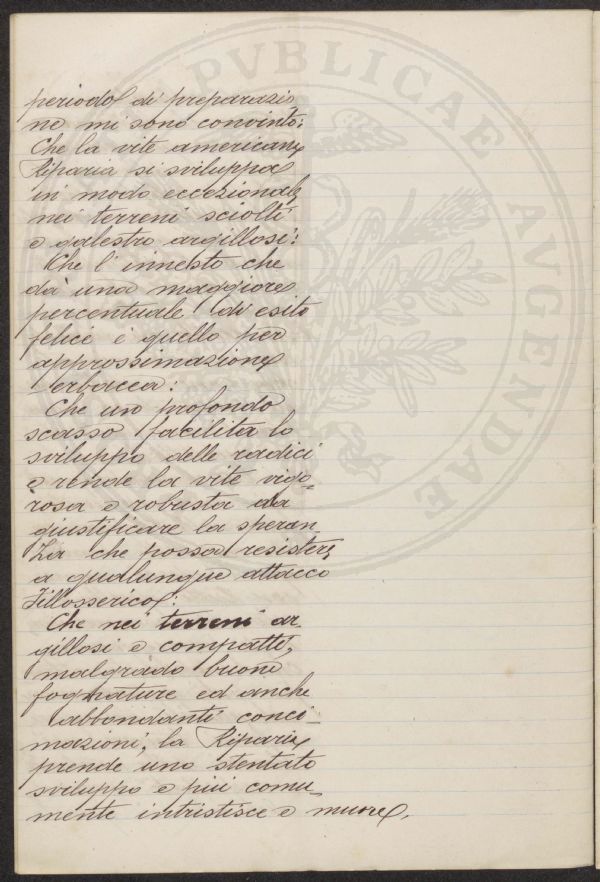 periodo di preparazio
ne mi sono convinto:
Che la vite americana
Riparia si sviluppa
in modo eccezionale
nei terreni sciolti
e galestro argillosi:
Che l'innesto che
dà una maggiore
percentuale di esito
felice è quello per
approssimazione
erbacea:
Che un profondo
scasso facilita lo
sviluppo delle radici
e rende la vite vigo-
rosa e robusta da
giustificare la speran
za che possa resistere
a qualunque attacco
Fillosserico:
Che nei terreni ar-
gillosi e compatti,
malgrado buone
fognature ed anche
abbondanti conci-
mazioni, la Riparia
prende uno stentato
sviluppo e più comu-
mente intristisce e muore.
PVBLICAE AVGENDAE